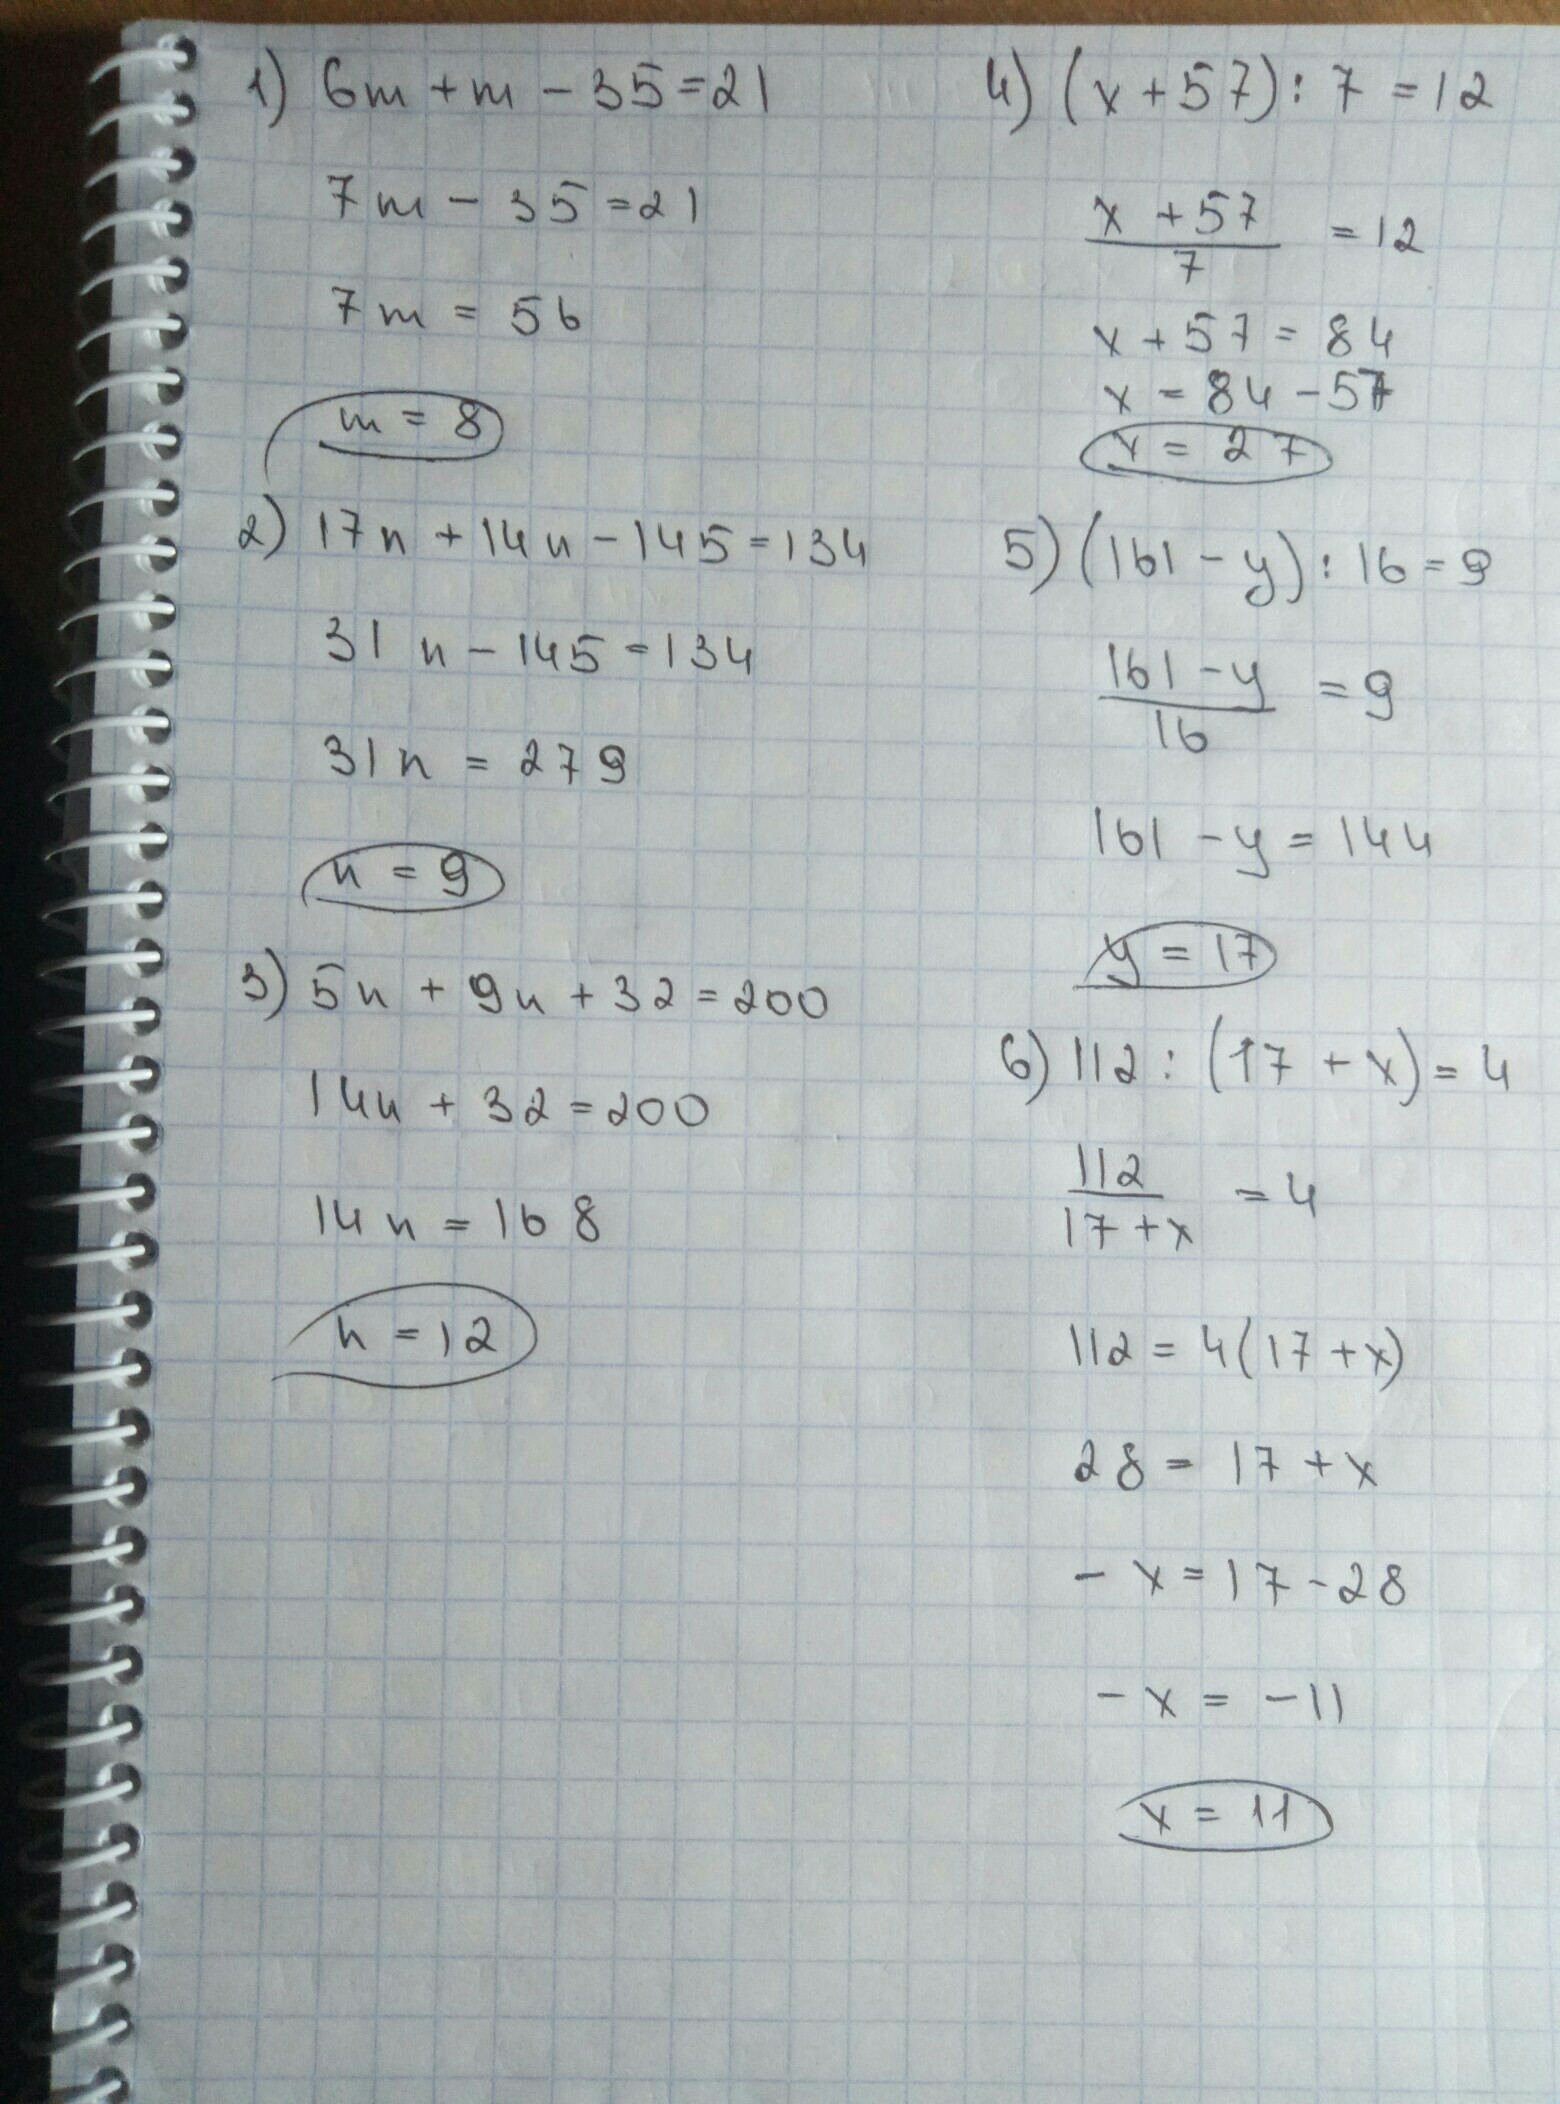 1) 6m + m - 35 = 21
7m - 35 = 21
7m = 56
m = 8
2) 17n + 14n - 145 = 134
31n - 145 = 134
31n = 279
n = 9
3) 5n + 9n + 32 = 200
14n + 32 = 200
14n = 168
n = 12
4) (x + 57) : 7 = 12
x + 57
7
= 12
x + 57 = 84
x = 84 - 57
x = 27
5) (161 - y) : 16 = 9
161 - y
16
= 9
161 - y = 144
y = 17
6) 112 : (17 + x) = 4
112
17 + x
= 4
112 = 4(17 + x)
28 = 17 + x
- x = 17 - 28
- x = -11
x = 11